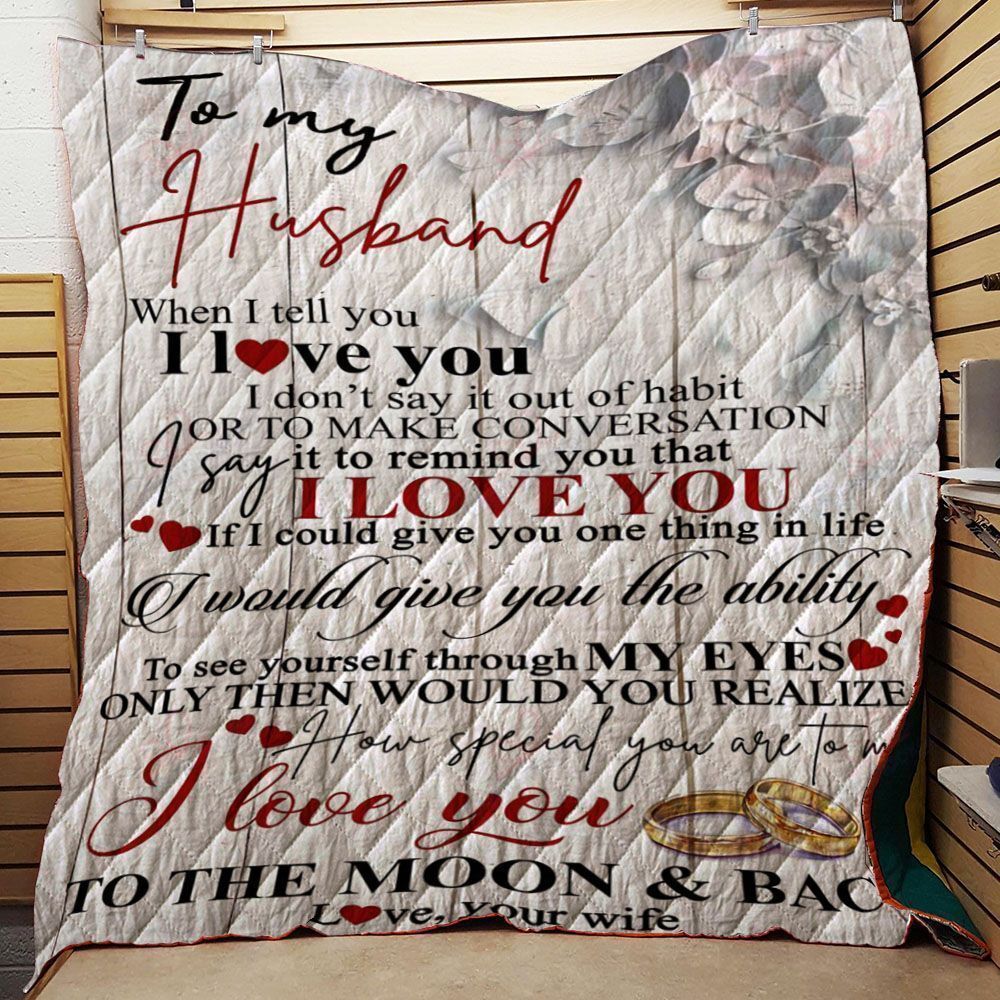 To my
Husband
When I tell you
I l❤ve you
I don't say it out of habit
OR TO MAKE CONVERSATION
I say it to remind you that
I LOVE YOU
If I could give you one thing in life
I would give you the ability
To see yourself through MY EYES
ONLY THEN WOULD YOU REALIZE
How special you are to m
I love you
TO THE MOON & BAC
L❤ve, your wife